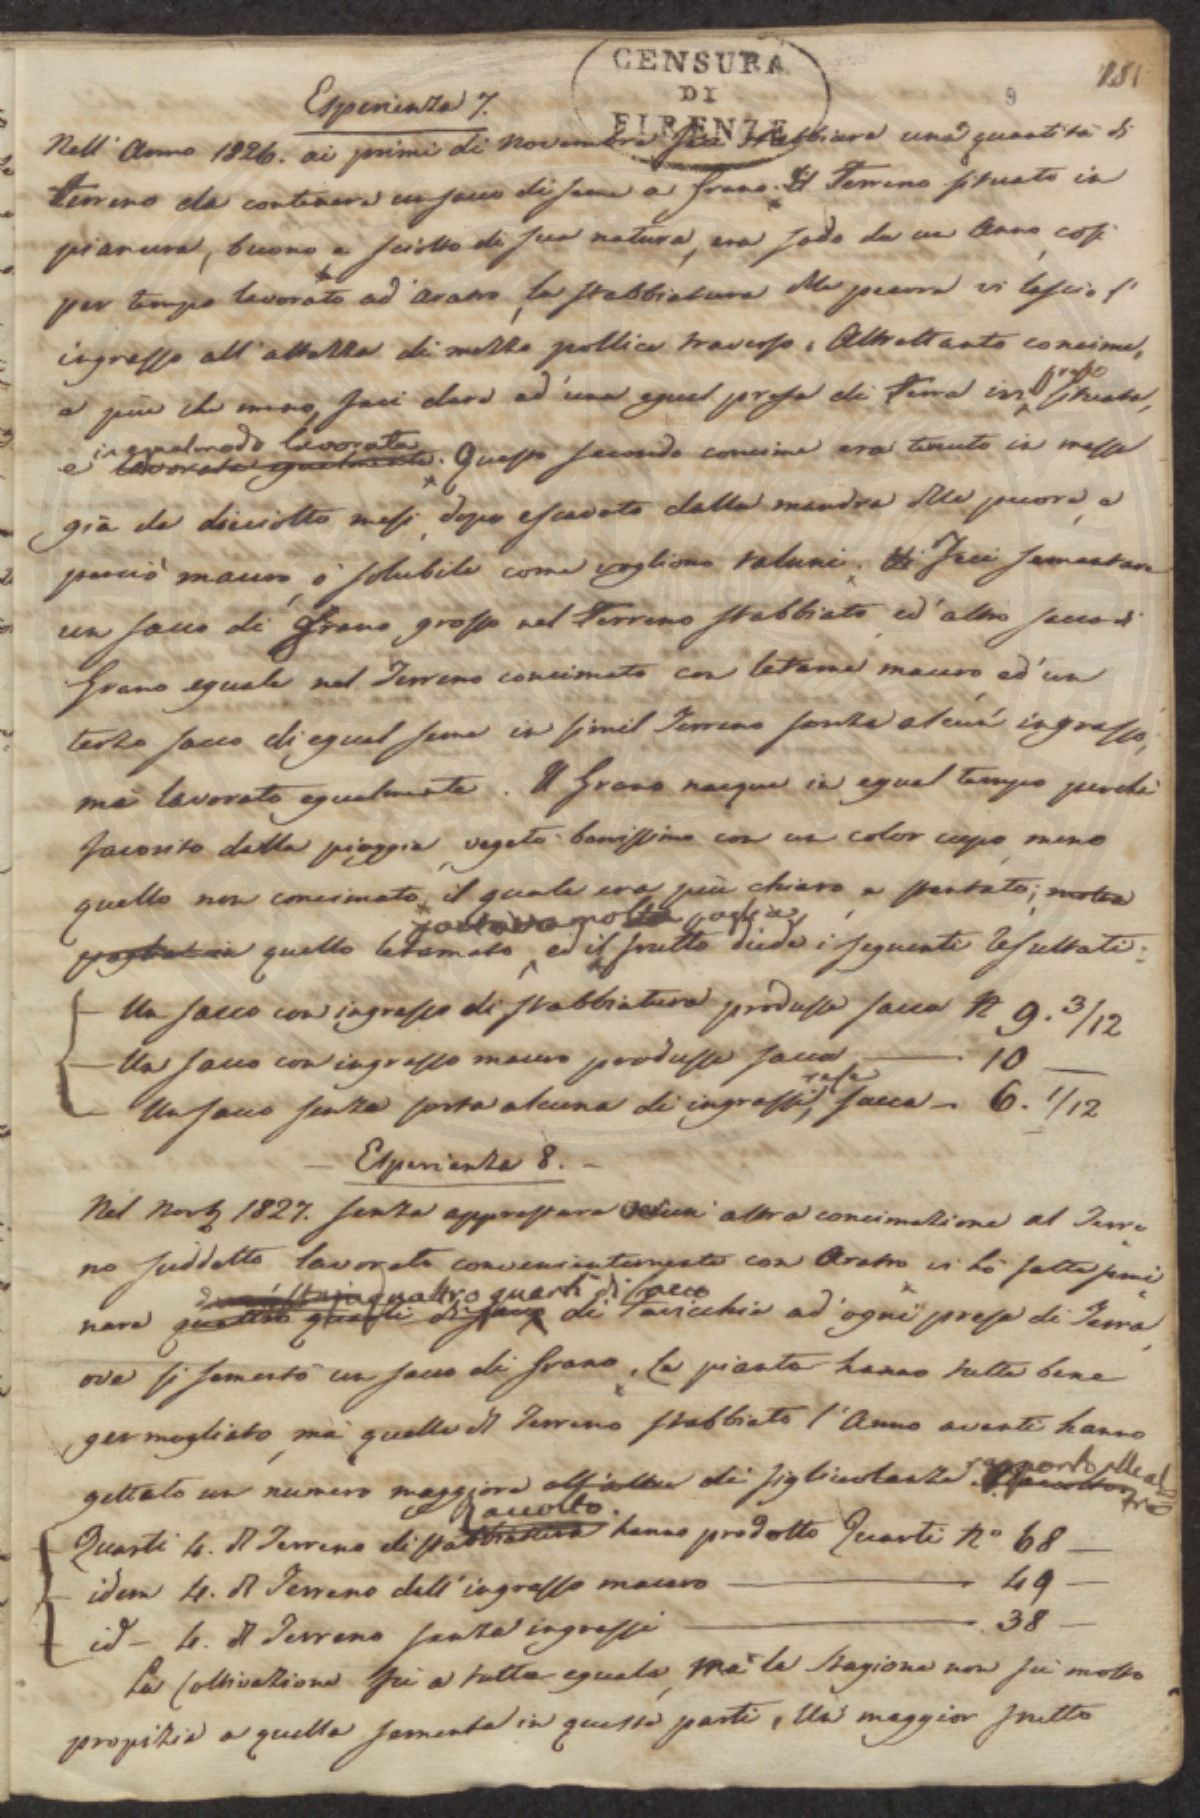 CENSURA
DI
FIRENZE
181
9
Esperienza 7.
Nell' Anno 1826. ai primi di Novembre feci stabbiare una quantità di
Terreno da contenere un sacco di seme a Grano. Il Terreno situato in
pianura, buono e sciolto di sua natura, era sodo da un Anno, così
per tempo lavorato ad aratro, la stabbiatura delle pecore vi lasciò l'
ingrasso all'altezza di mezzo pollice traverso. Altrettanto concime,
e più che meno, feci dare ad una egual presa di Terra ivi presso situata,
e in egual modo lavorata
lavorata egualmente. Questo secondo concime era tenuto in massa
già da diciotto mesi, dopo escavato dalla mandra delle pecore, e
perciò macero, o solubile come vogliono taluni. Feci sementare
un sacco di Grano grosso nel Terreno stabbiato, ed altro sacco di
Grano eguale nel Terreno concimato con letame macero, ed un
terzo sacco di egual seme in simil Terreno senza alcun ingrasso,
ma lavorato egualmente. Il Grano nacque in egual tempo perchè
favorito dalla pioggia, vegetò benissimo con un color cupo, meno
quello non concimato, il quale era più chiaro e stentato; molta
molta paglia
paglia in quello letamato, ed il frutto diede i seguenti resultati:
Un sacco con ingrasso di stabbiatura produsse sacca N 9. 3/12
Un sacco con ingrasso macero produsse sacca — 10 —
Un sacco senza sorta alcuna di ingrassi, rese sacca — 6. 1/12
— Esperienza 8. —
Nel Novb 1827. senza apprestare altra concimazione al Terre
no suddetto lavorato convenientemente con Aratro vi hò fatto semi
quattro quarti di sacco
nare quattro quarti di sacco di Vecicchia ad ogni presa di Terra,
ove si sementò un sacco di Grano. Le piante hanno tutte bene
germogliato, ma quelle del Terreno stabbiato l'Anno avanti hanno
gettato un numero maggiore all'altre di figliolanza rapporto alle al
tre
Raccolto.
Quarti 4. del Terreno di stabbiatura hanno prodotto Quarti No 68 —
idem 4. del Terreno dell'ingrasso macero — 49 —
id — 4. del Terreno senza ingrassi — 38 —
La Coltivazione fù a tutte eguale, ma la Stagione non fù molto
propizia a quella sementa in queste parti. Un maggior frutto